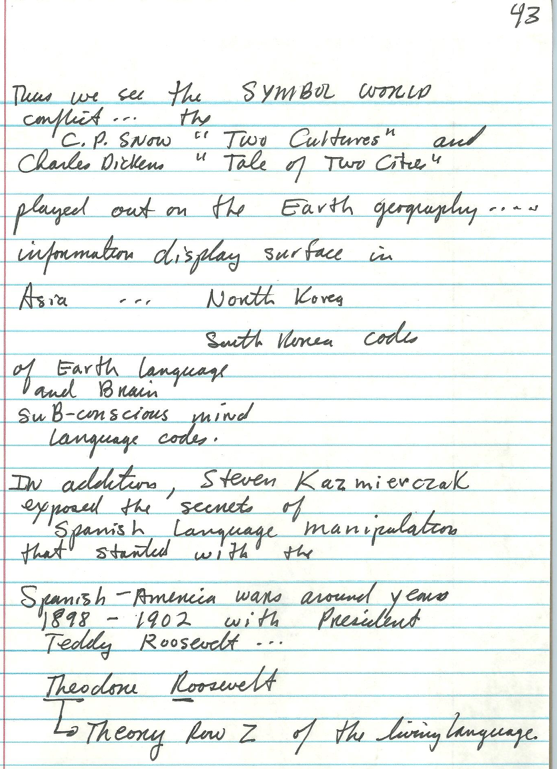 43
Thus we see the SYMBOL WORLD
conflict... the
C.P. SNOW "Two Cultures" and
Charles Dickens "Tale of Two Cities"
played out on the Earth geography.....
information display surface in
Asia ... North Korea
South Korea codes
of Earth Language
and Brain
suB-conscious mind
Language codes.
In addition, Steven Kazmierczak
exposed the secrets of
Spanish Language manipulation
that started with the
Spanish-America wars around years
1898-1902 with President
Teddy Roosevelt...
Theodore Roosevelt
Theory Row Z of the living language.